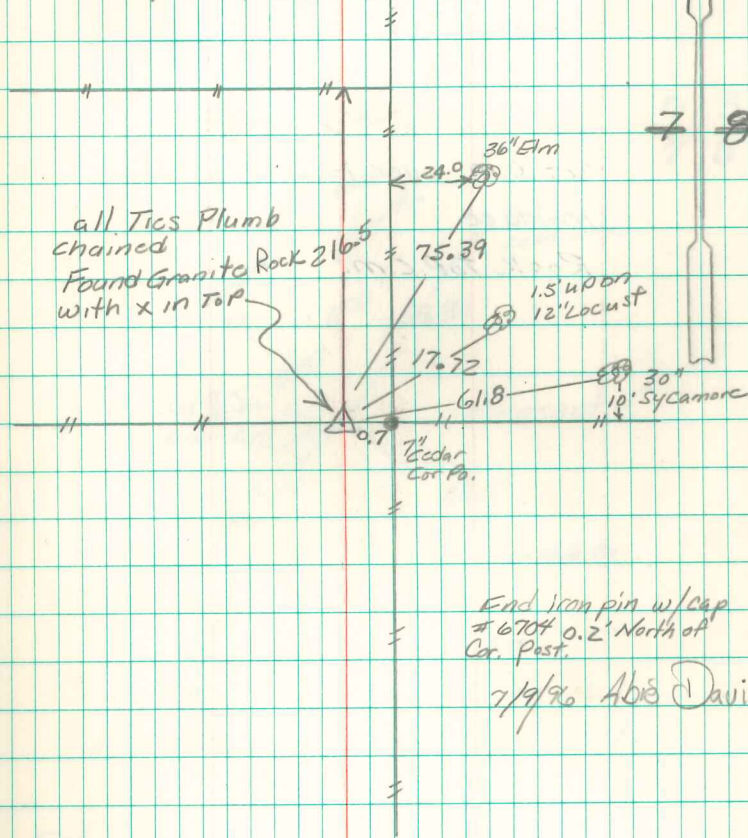 7 8
36" Elm
24.0
all Ties Plumb
chained
Found Granite Rock
with x in Top
216.5
75.39
1.5' up on
12" Locust
17.72
61.8
30"
10' Sycamore
0.7
7"
Cedar
Cor Po.
Fnd iron pin w/cap
#6704 0.2' North of
Cor. Post.
7/9/96 Abie Davi